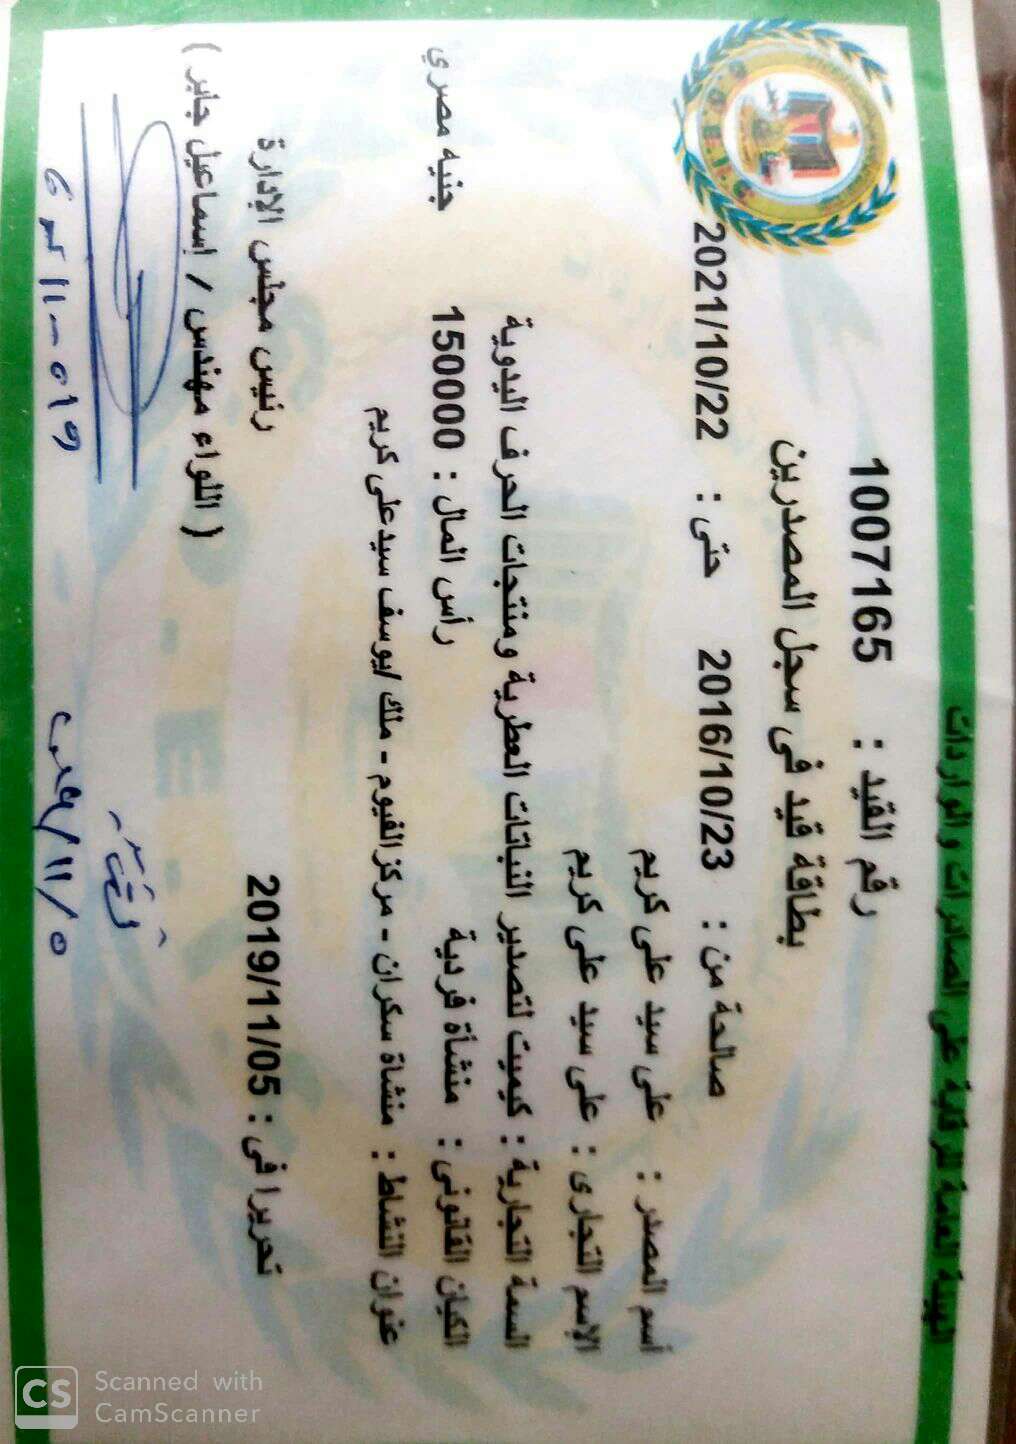 الهيئة العامة للرقابة على الصادرات والواردات
رقم القيد : 1007165
بطاقة قيد فى سجل المصدرين
صالحة من : 2016/10/23 حتى : 2021/10/22
أسم المصدر : على سيد على كريم
الإسم التجارى : على سيد على كريم
السمة التجارية : كيميت لتصدير النباتات العطرية ومنتجات الحرف اليدوية
الكيان القانونى : منشأة فردية رأس المال : 150000 جنيه مصري
عنوان النشاط : منشاة سكران - مركز الفيوم - ملك /يوسف سيدعلى كريم
تحريرا فى : 2019/11/05 رئيس مجلس الإدارة
( اللواء مهندس / إسماعيل جابر )
G.O.E.I.C
CS Scanned with
CamScanner